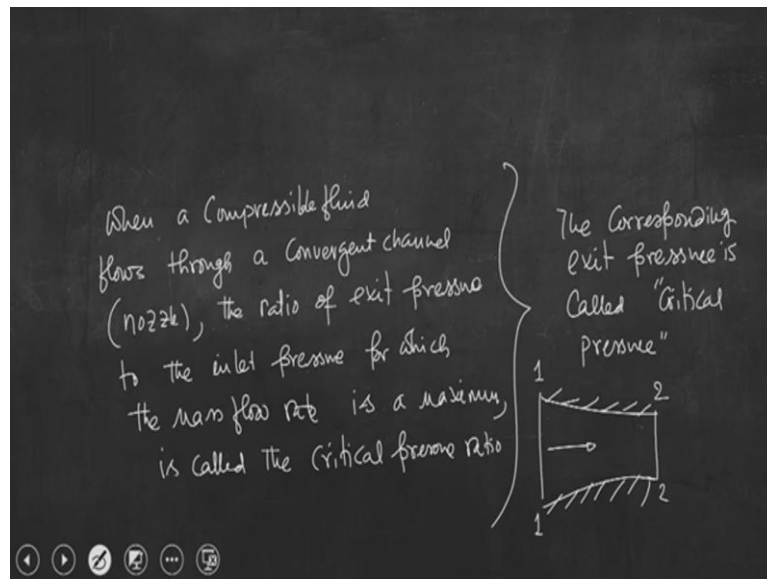 When a Compressible fluid
flows through a Convergent channel
(nozzle), the ratio of exit pressure
to the inlet pressure for which
the mass flow rate is a maximum,
is called the Critical pressure ratio
The Corresponding
exit pressure is
Called "Critical
pressure"
1 2
1 2